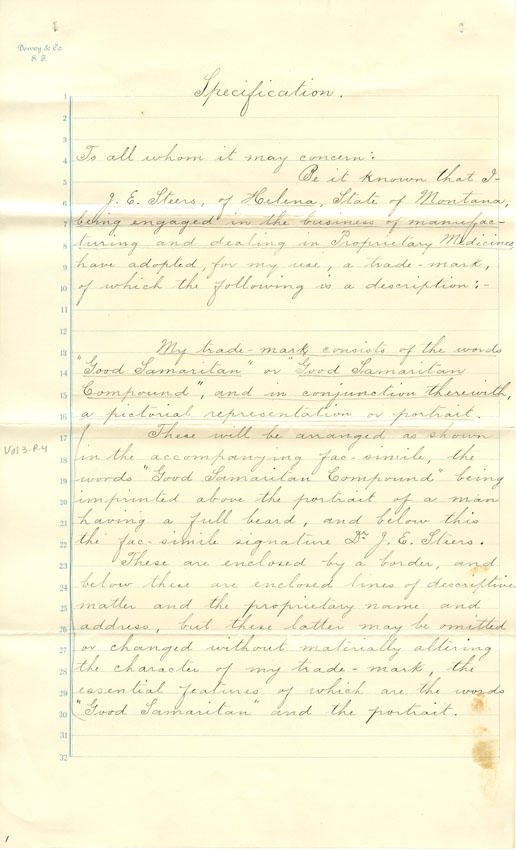 Dewey & Co
S. F.
Specification.
1
2
3
4 To all whom it may concern:
5 Be it known that I
6 J. E. Steers, of Helena, State of Montana,
7 being engaged in the business of manufac-
8 turing and dealing in Proprietary Medicines
9 have adopted, for my use, a trade-mark,
10 of which the following is a description:-
11
12
13 My trade-mark consists of the words
14 "Good Samaritan" or "Good Samaritan
15 Compound", and in conjunction therewith,
16 a pictorial representation or portrait.
17 These will be arranged, as shown
18 in the accompanying fac-simile, the
Vol 3-P.4
19 words "Good Samaritan Compound" being
20 imprinted above the portrait of a man
21 having a full beard, and below this
22 the fac-simile signature Dr J. E. Steers.
23 These are enclosed by a border, and
24 below these are enclosed lines of descriptive
25 matter and the proprietary name and
26 address, but these latter may be omitted
27 or changed without materially altering
28 the character of my trade-mark, the
29 essential features of which are the words
30 "Good Samaritan" and the portrait.
31
32